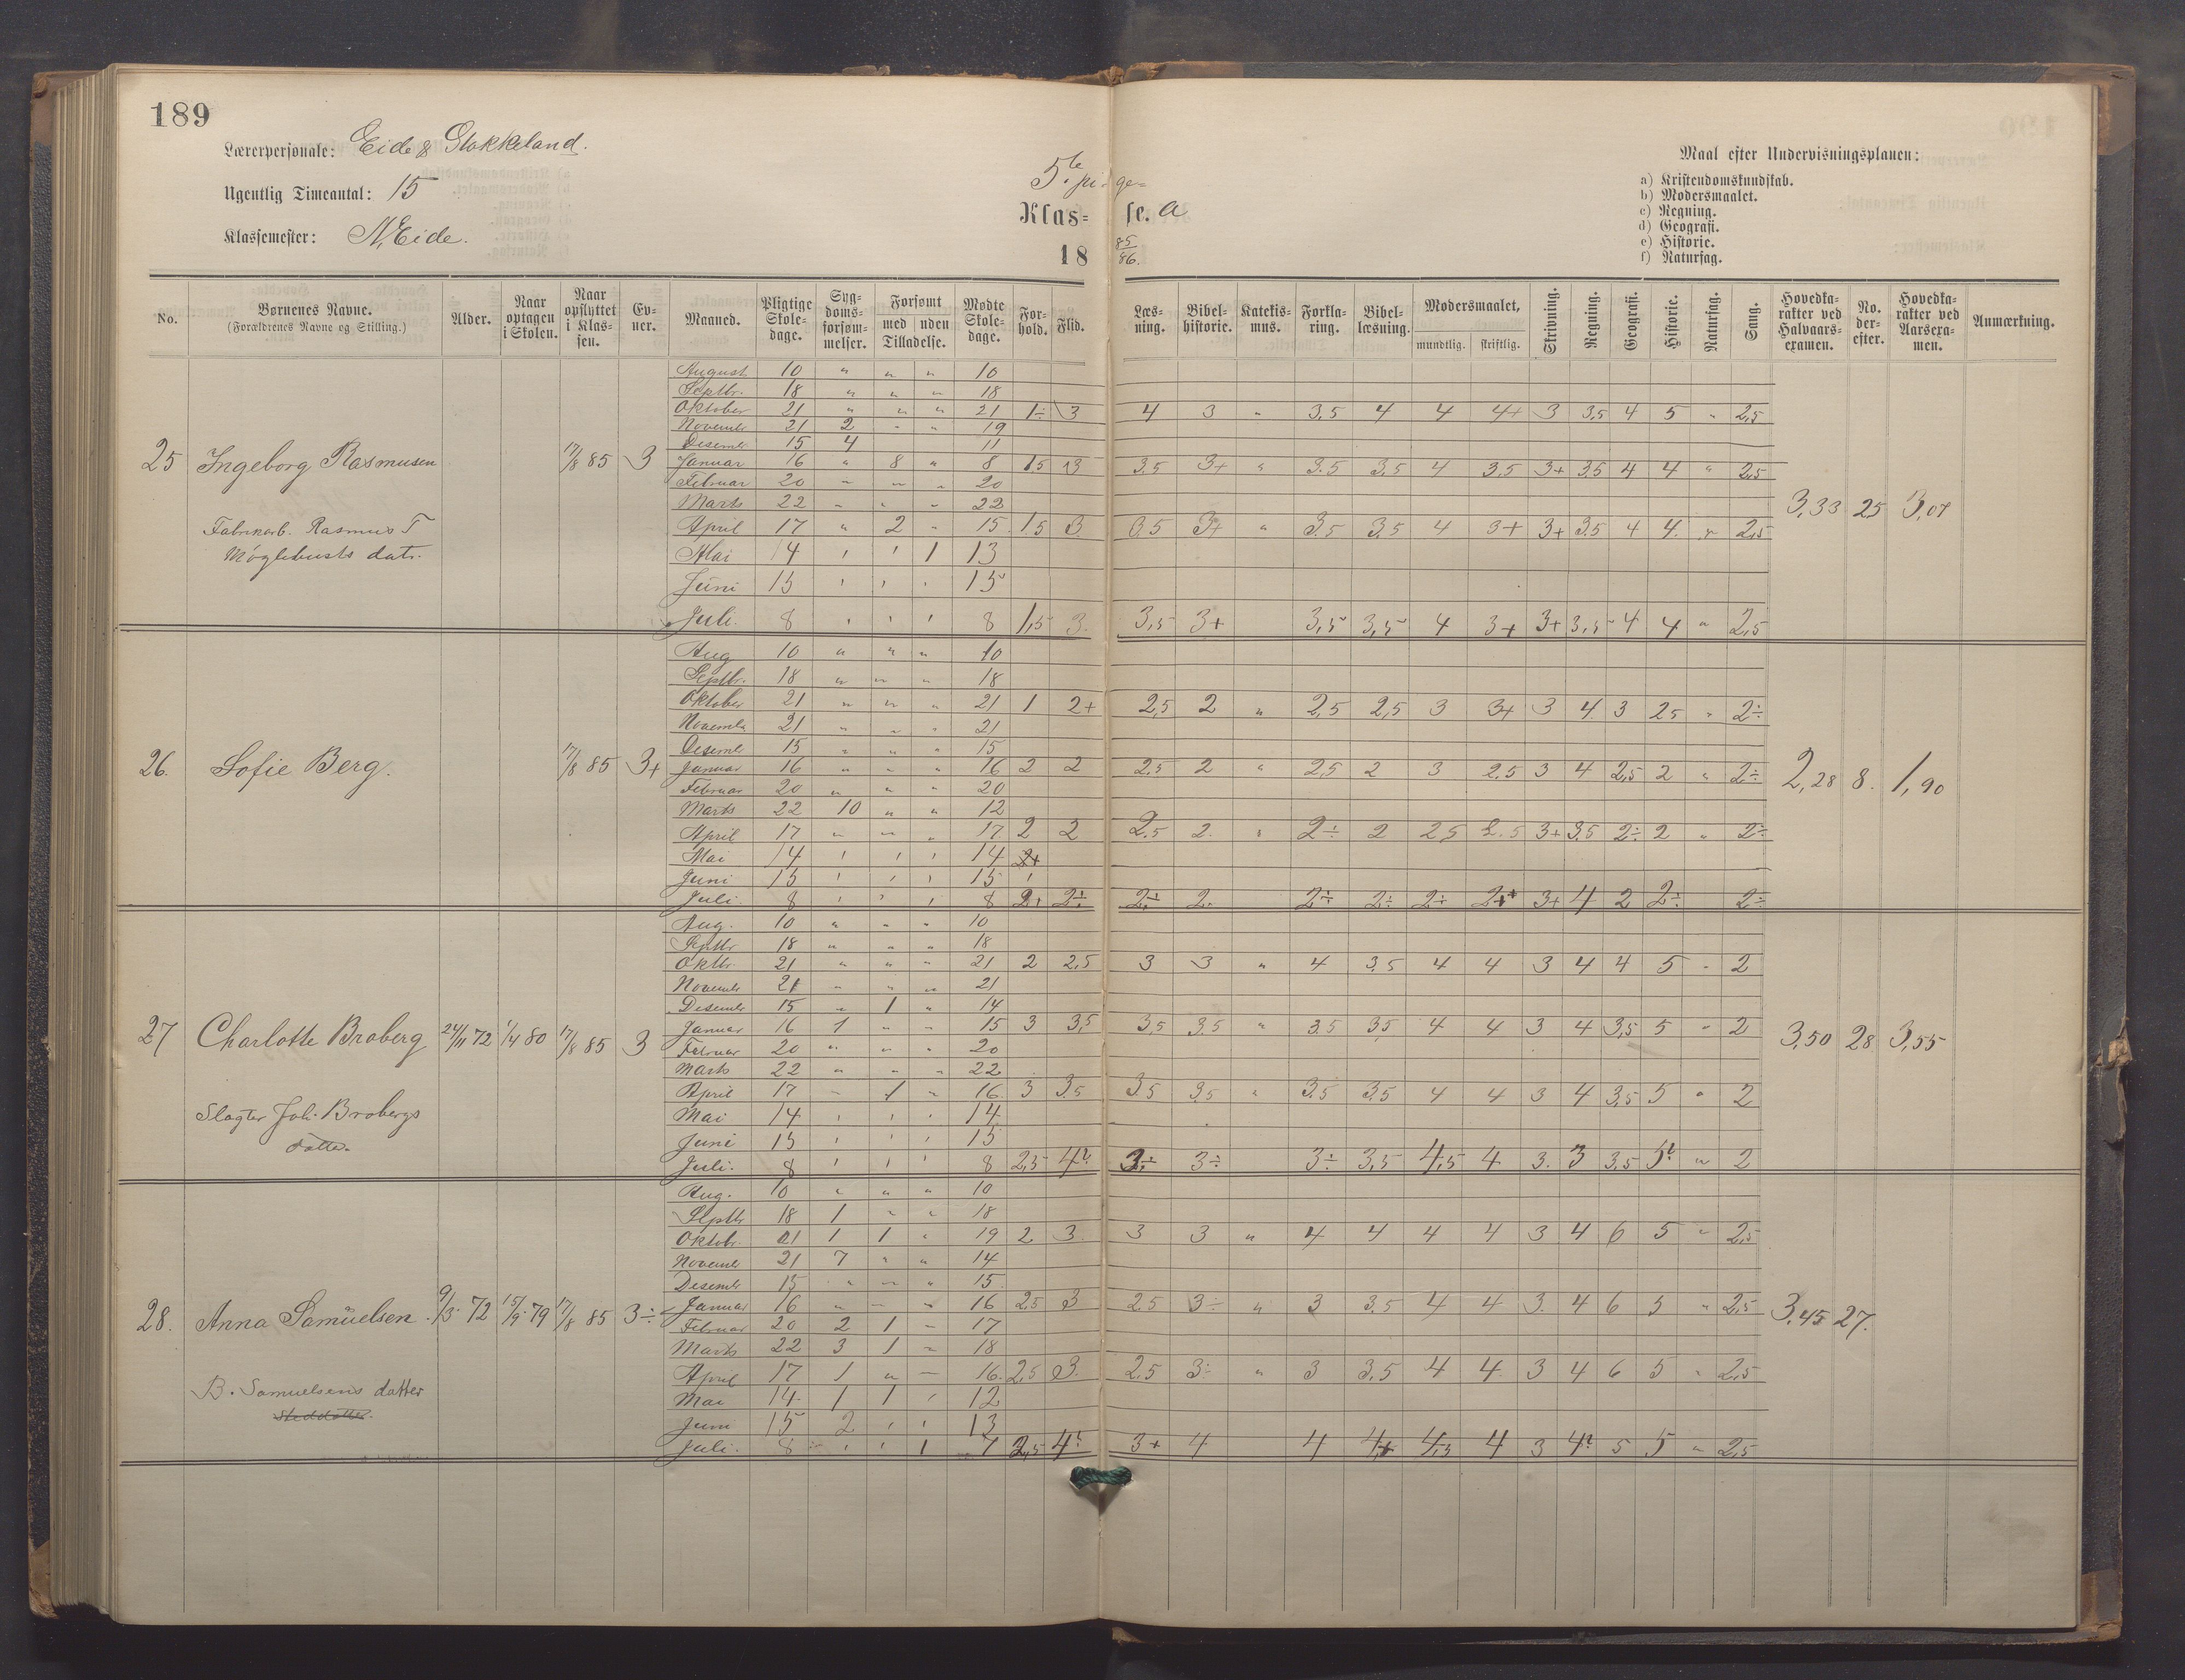 189
Lærerpersonale: Eide & Stokkeland.
Ugentlig Timeantal: 15
Klassemester: N. Eide.
5te pige-
Klas- se. a
18 85/86.
Maal efter Undervisningsplanen:
a) Kristendomskundskab.
b) Modersmaalet.
c) Regning.
d) Geografi.
e) Historie.
f) Naturfag.
No. Børnenes Navne. (Forældrenes Navne og Stilling.) Alder. Naar optagen i Skolen. Naar opflyttet i Klas-sen. Ev-ner. Maaned. Pligtige Skole-dage. Syg-doms-forsøm-melser. Forsømt med uden Tilladelse. Mødte Skole-dage. For-hold. Flid. Læs-ning. Bibel-historie. Katekis-mus. Forkla-ring. Bibel-læsning. Modersmaalet, mundtlig. skriftlig. Skrivning. Regning. Geografi. Historie. Naturfag. Sang. Hovedka-rakter ved Halvaars-examen. No. der-efter. Hovedka-rakter ved Aarsexa-men. Anmærkning.
25 Ingeborg Rasmusen 17/8 85 3
Fabrikarb. Rasmus T
Møglebusts datr.
August 10 " " " 10
Septbr. 18 " " " 18
Oktober 21 " " " 21 1÷ 3 4 3 " 3,5 4 4 4+ 3 3,5 4 5 " 2,5
Novembr 21 2 " " 19
Desembr 15 4 11
Januar 16 " 8 " 8 1,5 3 3,5 3+ " 3,5 3,5 4 3,5 3+ 3,5 4 4 " 2,5
Februar 20 " " " 20
Marts 22 " " " 22
April 17 " 2 " 15 1,5 3 3,5 3+ " 3,5 3,5 4 3+ 3+ 3,5 4 4 " 2,5
Mai 14 ' ' 1 13
Juni 15 ' ' ' 15
Juli. 8 ' ' ' 8 1,5 3. 3,5 3+ 3,5 3,5 4 3+ 3+ 3,5 4 4 " 2,5
3,33 25 3,07
26. Sofie Berg. 17/8 85 3+
Aug 10 " " " 10
Septbr. 18 " " " 18
Oktober 21 " " " 21 1 2+ 2,5 2 " 2,5 2,5 3 3+ 3 4 3 2,5 " 2÷
Novembr 21 " " " 21
Desembr 15 " " " 15
Januar 16 " " " 16 2 2 2,5 2 " 2,5 2 3 2,5 3 4 2,5 2 " 2÷
Februar 20 " " " 20
Marts 22 10 " " 12
April 17 " " " 17 2 2 2,5 2. " 2÷ 2 2,5 2,5 3+ 3,5 2÷ 2 " 2÷
Mai 14 ' ' ' 14
Juni 15 ' ' ' 15
Juli. 8 ' ' ' 8 2÷ 2÷ 2. 2÷ 2÷ 2÷ 2+ 3+ 4 2 2÷ 2÷
2,28 8. 1,90
27 Charlotte Broberg 24/11 72 1/4 80 17/8 85 3
Slagter Joh. Brobergs
datter
Aug. 10 " " " 10
Septbr 18 " " " 18
Oktbr. 21 " " " 21 2 2,5 3 3 " 4 3,5 4 4 3 4 4 5 " 2
Novembr 21 " " " 21
Desembr 15 " 1 " 14
Januar 16 1 " " 15 3 3,5 3,5 3,5 " 3,5 3,5 4 4 3 4 3,5 5 " 2
Februar 20 " " " 20
Marts 22 " " " 22
April 17 " 1 " 16. 3 3,5 3,5 3,5 " 3,5 3,5 4 4 3 4 3,5 5 " 2
Mai 14 ' ' ' 14
Juni 15 ' ' ' 15
Juli. 8 ' ' ' 8 2,5 4? 3÷ 3÷ 3÷ 3,5 4,5 4 3. 3 3,5 5? " 2
3,50 28 3,55
28. Anna Samuelsen. 9/3 72 15/9 79 17/8 85 3÷
B. Samuelsens datter
Steddatter.
Aug. 10 " " " 10
Septbr 18 1 " " 18
Oktobr. 21 1 1 " 19 2 3 3 3 " 4 4 4 4 3 4 6 5 " 2,5
Novembr 21 7 " " 14
Desembr 15 " " " 15
Januar 16 " " " 16 2,5 3 2,5 3÷ " 3 3,5 4 4 3. 4 6 5 " 2,5
Februar 20 2 1 " 17
Marts 22 3 1 " 18
April 17 1 " " 16. 2,5 3. 2,5 3÷ " 3 3,5 4 4 3 4 6 5 " 2,5
Mai 14 1 1 ' 12
Juni 15 2 ' ' 13
Juli. 8 ' ' 1 7 2,5 4? 3+ 4 4 4+ 4,5 4 3 4? 5 5 " 2,5
3,45 27.